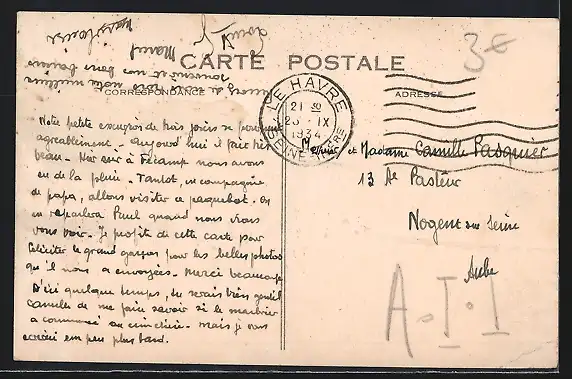 3€
CARTE POSTALE
CORRESPONDANCE
ADRESSE
LE HAVRE
21 30
23 - IX
1934
SEINE-INFRE
Notre petite excursion de trois jours se poursuit
agréablement - Aujourd'hui il fait très
beau - Hier soir à Fécamp nous avons
eu de la pluie - Tantôt, en compagnie
de papa, allons visiter ce paquebot. On
en reparlera quand nous irons
vous voir - Je profite de cette carte pour
féliciter le grand garçon pour les belles photos
qu'il nous a envoyées - Merci beaucoup
D'ici quelque temps, tu serais bien gentil
Camille de me faire savoir si le marbrier
a commencé au cimetière - Mais je vous
écrirai un peu plus tard.
nos meilleurs
souvenirs et bons baisers
Marcel
Monsieur et Madame Camille Pasquier
13 Re Pasteur
Nogent sur Seine
Aube
A-I-1